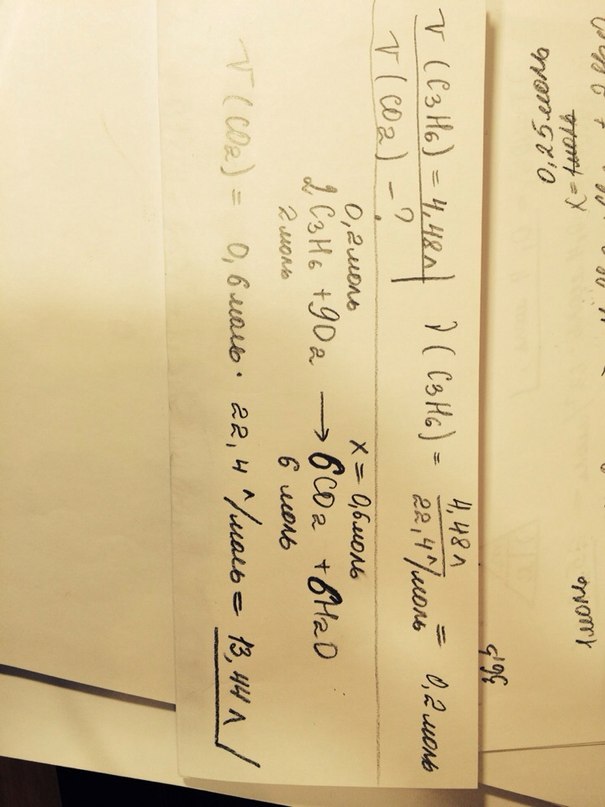 V (C3H6) = 4,48л
ν(C3H6) = 4,48л / 22,4 л/моль = 0,2 моль
V (CO2) - ?
0,2моль x = 0,6моль
2C3H6 + 9O2 → 6CO2 + 6H2O
2моль 6 моль
V (CO2) = 0,6моль · 22,4 л/моль = 13,44 л
0,25моль
x = 1моль
1моль